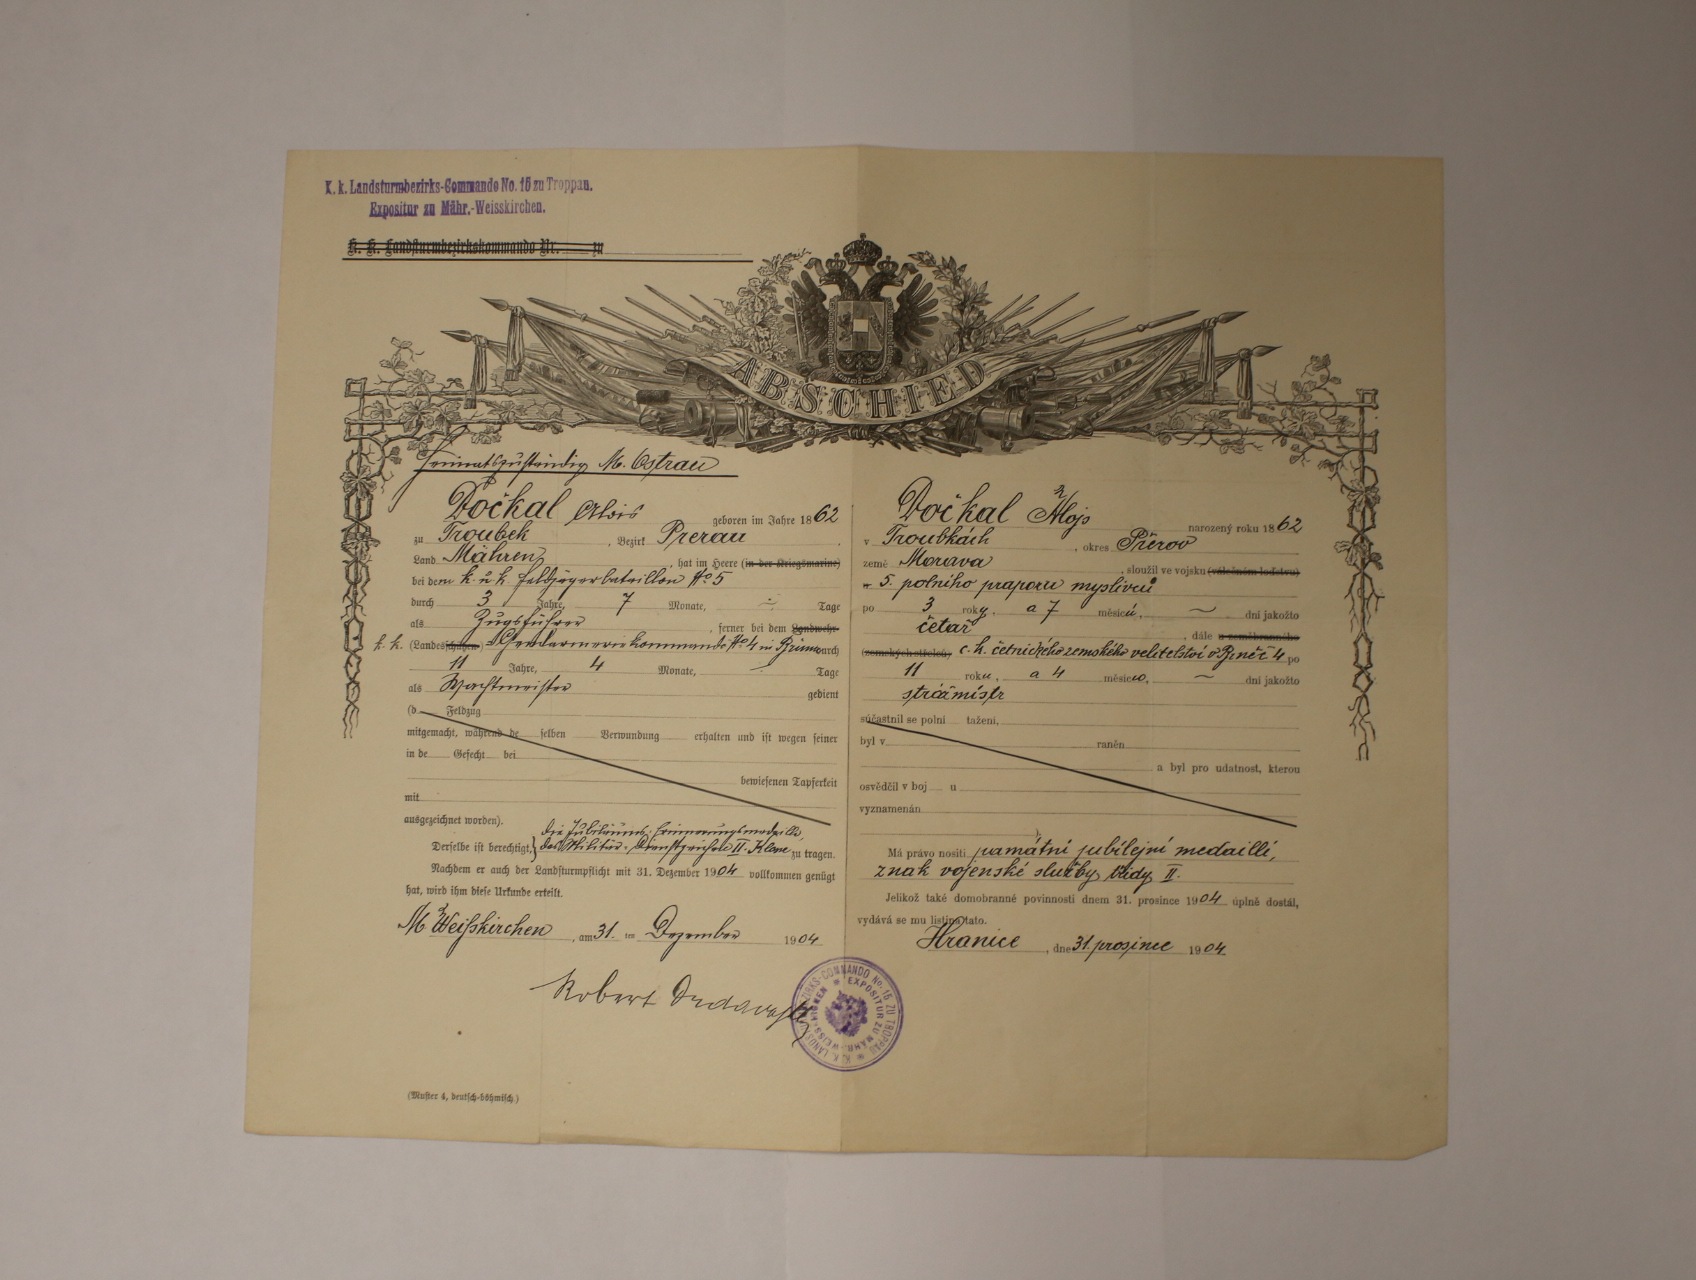 K. k. Landsturmbezirks-Commando No. 15 zu Troppau.
Expositur zu Mähr.-Weisskirchen.
K. K. Landsturmbezirkskommando Nr. zu
ABSCHIED
Heimatszuständig M. Ostrau
Dočkal Alois geboren im Jahre 1862
zu Troubek, Bezirk Prerau,
Land Mähren, hat im Heere (in der Kriegsmarine)
bei dem k. u. k. Feldjägerbataillon No 5
durch 3 Jahre, 7 Monate, Tage
als Zugsführer, ferner bei dem Landwehr-
k. k. (Landesschützen) Gendarmeriekommando No 4 in Brünn durch
11 Jahre, 4 Monate, Tage
als Wachtmeister gedient
(d Feldzug
mitgemacht, während de selben Verwundung erhalten und ist wegen seiner
in de Gefecht bei
bewiesenen Tapferkeit
mit
ausgezeichnet worden).
die Jubiläums-Erinnerungsmedaille,
Derselbe ist berechtigt, das Militär-Dienstzeichen II. Klasse zu tragen.
Nachdem er auch der Landsturmpflicht mit 31. Dezember 1904 vollkommen genügt
hat, wird ihm diese Urkunde erteilt.
M. Weißkirchen, am 31. ten Dezember 1904
Dočkal Alojs narozený roku 1862
v Troubkách, okres Přerov
země Morava, sloužil ve vojsku (válečném loďstvu)
u 5. polního praporu myslivců
po 3 roky, a 7 měsíců, dní jakožto
četař, dále u zeměbranného
(zemských střelců) c. k. četnického zemského velitelství v Brně č 4 po
11 roků, a 4 měsíce, dní jakožto
strážmistr
súčastnil se polní tažení,
byl v raněn
a byl pro udatnost, kterou
osvědčil v boj u
vyznamenán
Má právo nositi památní jubilejní medailli,
znak vojenské služby třídy II.
Jelikož také domobranné povinnosti dnem 31. prosince 1904 úplně dostál,
vydává se mu listina tato.
Hranice, dne 31. prosince 1904
Robert
K. K. LANDSTURMBEZIRKS-COMMANDO No. 15 ZU TROPPAU
EXPOSITUR ZU MÄHR.-WEISSKIRCHEN
(Muster 4, deutsch-böhmisch.)